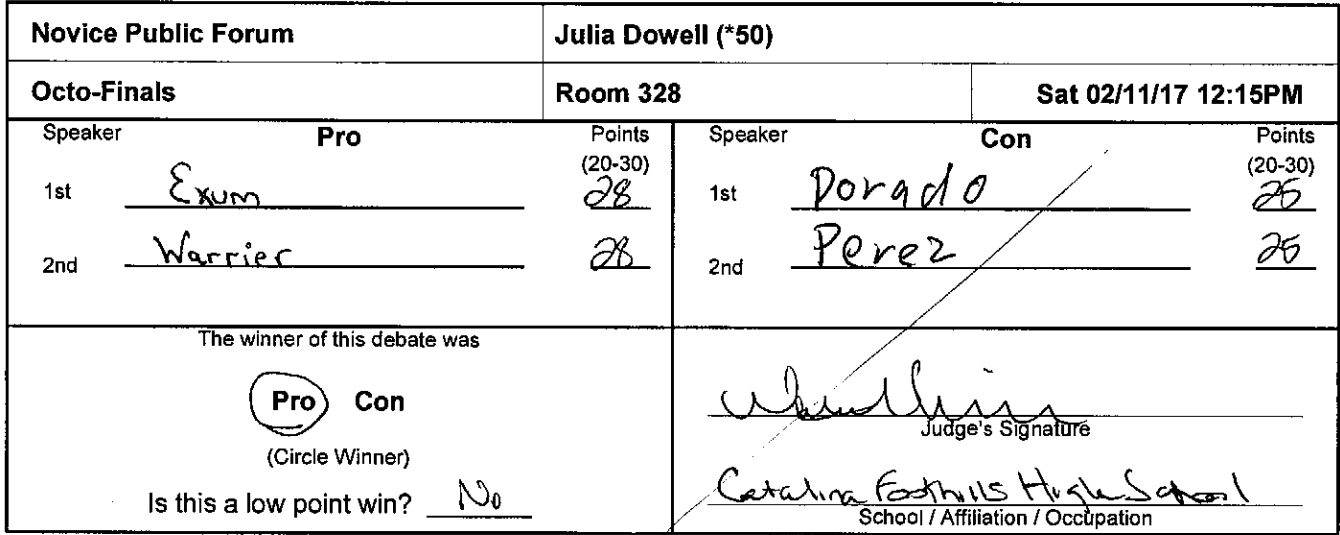 Novice Public Forum Julia Dowell (*50)
Octo-Finals Room 328 Sat 02/11/17 12:15PM
Speaker Pro Points
(20-30)
1st Exum 28
2nd Warrier 28
Speaker Con Points
(20-30)
1st Dorado 25
2nd Perez 25
The winner of this debate was
Pro Con
(Circle Winner)
Is this a low point win? No
Judge's Signature
Catalina Foothills High School
School / Affiliation / Occupation